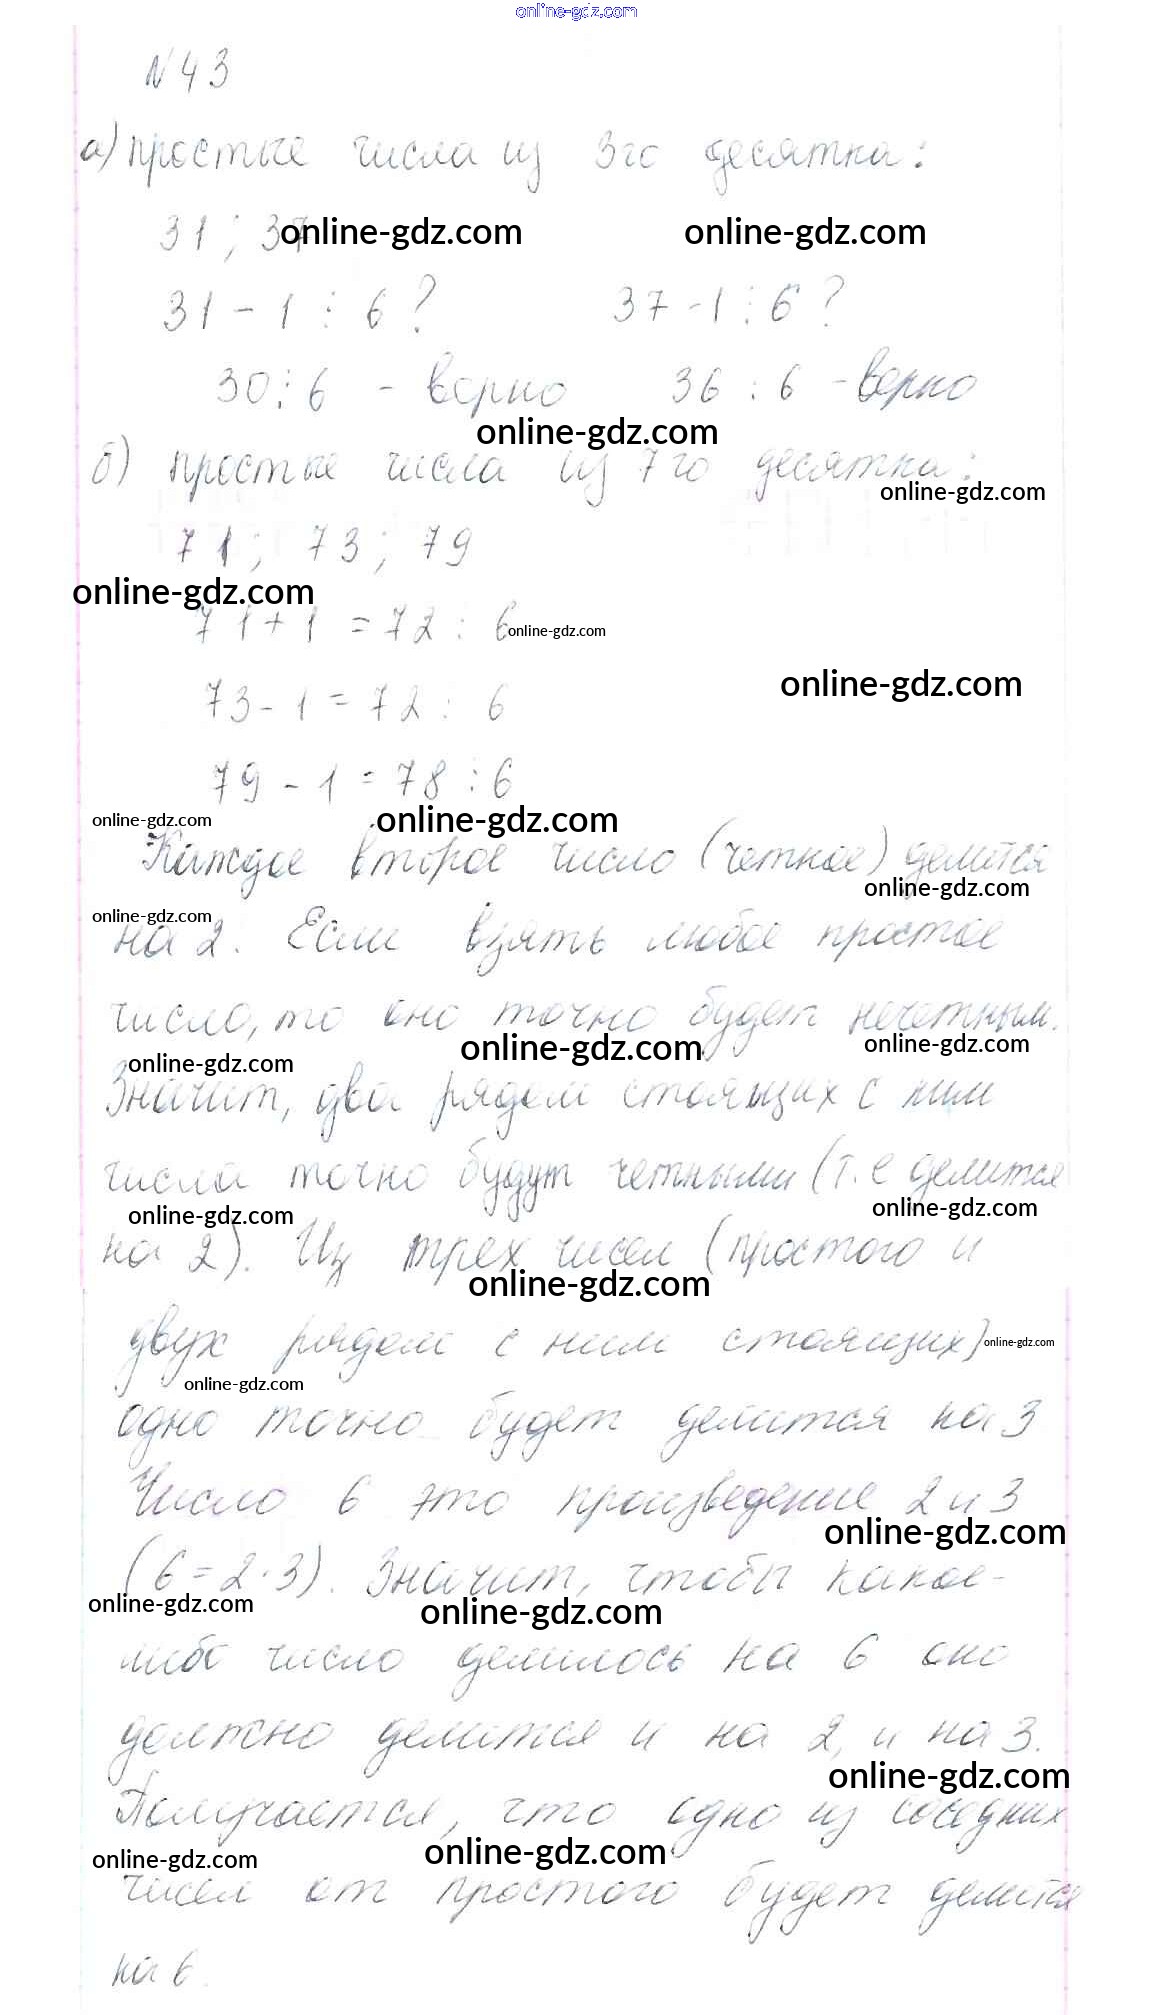 online-gdz.com
N 43
а) простые числа из 3го десятка:
31 ; 37
online-gdz.com online-gdz.com
31 - 1 ⋮ 6 ? 37 - 1 ⋮ 6 ?
30 ⋮ 6 - верно 36 ⋮ 6 - верно
online-gdz.com
б) простые числа из 7го десятка:
online-gdz.com
71 ; 73 ; 79
online-gdz.com
71 + 1 = 72 ⋮ 6
online-gdz.com
73 - 1 = 72 ⋮ 6
online-gdz.com
79 - 1 = 78 ⋮ 6
online-gdz.com online-gdz.com
Каждое второе число (четное) делится
online-gdz.com
online-gdz.com
на 2. Если взять любое простое
число, то оно точно будет нечетным.
online-gdz.com online-gdz.com online-gdz.com
Значит, два рядом стоящих с ним
числа точно будут четными (т.е делится
online-gdz.com online-gdz.com
на 2). Из трех чисел (простого и
online-gdz.com
двух рядом с ним стоящих)
online-gdz.com
online-gdz.com
одно точно будет делится на 3
Число 6 это произведение 2 и 3
online-gdz.com
(6 = 2 · 3). Значит, чтобы какое-
online-gdz.com online-gdz.com
либо число делилось на 6 оно
должно делится и на 2, и на 3.
online-gdz.com
Получается, что одно из соседних
online-gdz.com online-gdz.com
чисел от простого будет делится
на 6.